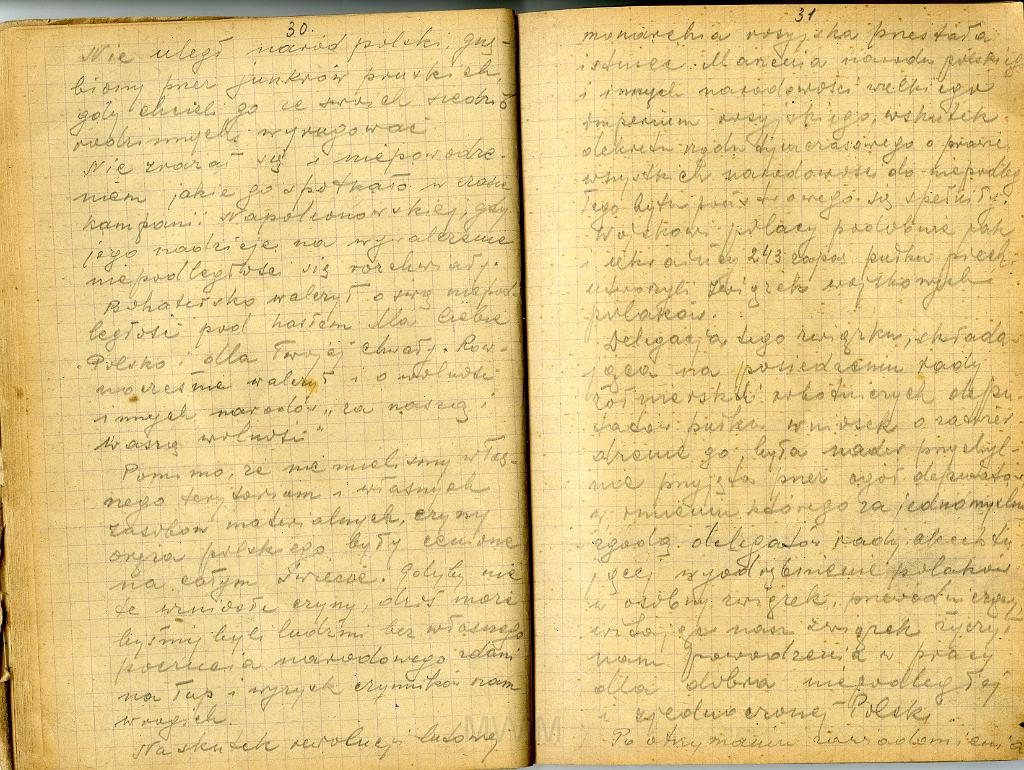 30.
Nie uległ naród polski, gnę-
biony przez junkrów pruskich,
gdy chcieli go ze swoich siedzib
rodzinnych wyrugować
Nie zrażał się i niepowodze-
niem jakie go spotkało w czasie
kampanii Napoleonowskiej, gdy
jego nadzieje na wywalczenie
niepodległości się rozchwiały.
Bohatersko walczył o swą niepod-
ległość pod hasłem dla Ciebie
Polsko i dla Twojej chwały. Rów-
nocześnie walczył i o wolność
innych narodów „za naszą i
waszą wolność"
Pomimo, że nie mieliśmy włas-
nego terytorium i własnych
zasobów materialnych, czyny
oręża polskiego były cenione
na całym świecie. Gdyby nie
te wzniosłe czyny, dziś może
byśmy byli ludźmi bez własnego
poczucia narodowego zdani
na łup i wyzysk czynników nam
wrogich.
Na skutek rewolucji lutowej
31
monarchia rosyjska przestała
istnieć. Marzenia narodu polskiego
i innych narodowości wielkiego
imperium rosyjskiego, wskutek
dekretu rządu tymczasowego o prawie
wszystkich narodowości do niepodleg
łego bytu państwowego się spełniły.
Wojskowi polacy podobnie jak
i ukraińcy 243 zapas. pułku piech.
utworzyli związek wojskowych
polaków.
Delegacja tego związku, składa-
jąca na posiedzeniu rady
żołnierskich i robotniczych depu-
tatów pułku wniosek o zatwier
dzenie go, była nader przychyl-
nie przyjęta przez ogół deputatów
w imieniu którego za jednomyślną
zgodą delegatów rady
jącej wyodrębnienie polaków
w osobny związek, przewodniczący,
witając nasz związek życzył
nam powodzenia w pracy
dla dobra niepodległej
i zjednoczonej Polski.
Po otrzymaniu zawiadomienia
MWM